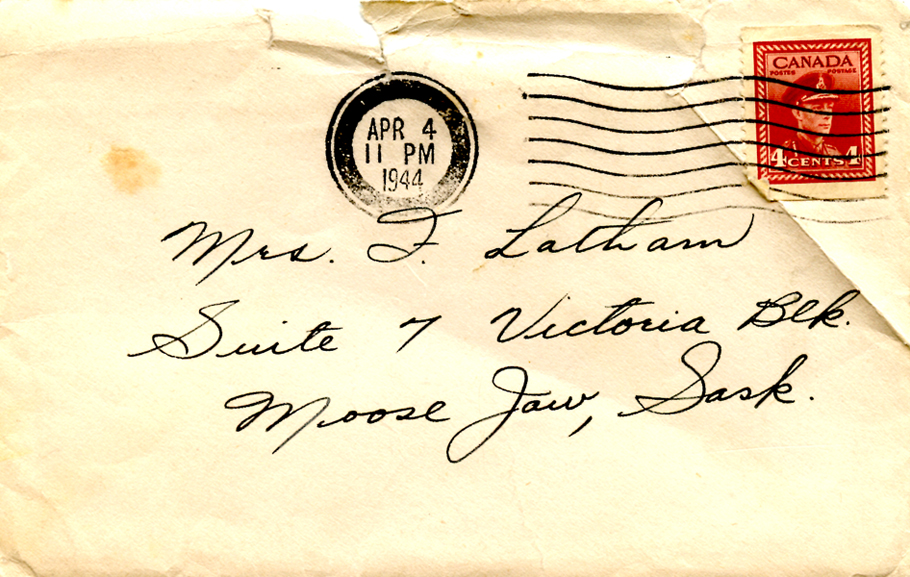 CANADA
POSTES POSTAGE
4 CENTS 4
APR 4
11 PM
1944
Mrs. F. Latham
Suite 7 Victoria Blk.
Moose Jaw, Sask.